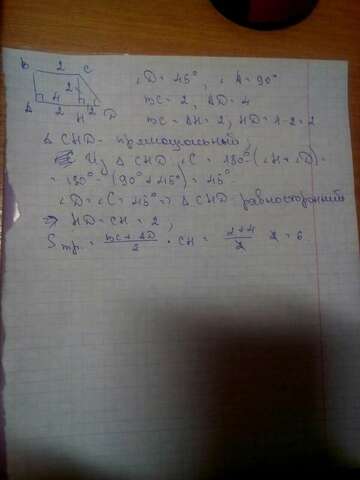 B 2 C
2
4
A 2 H 2 D
∠D = 45°, ∠A = 90°
BC = 2, AD = 4
BC = AH = 2, HD = 4-2 = 2
Δ CHD - прямоугольный,
Из Δ CHD, ∠C = 180° - (∠H + ∠D) =
= 180° - (90° + 45°) = 45°.
∠D = ∠C = 45° => Δ CHD равносторонний
=> HD = CH = 2,
Sтр. = BC + AD / 2 · CH = 2+4 / 2 · 2 = 6